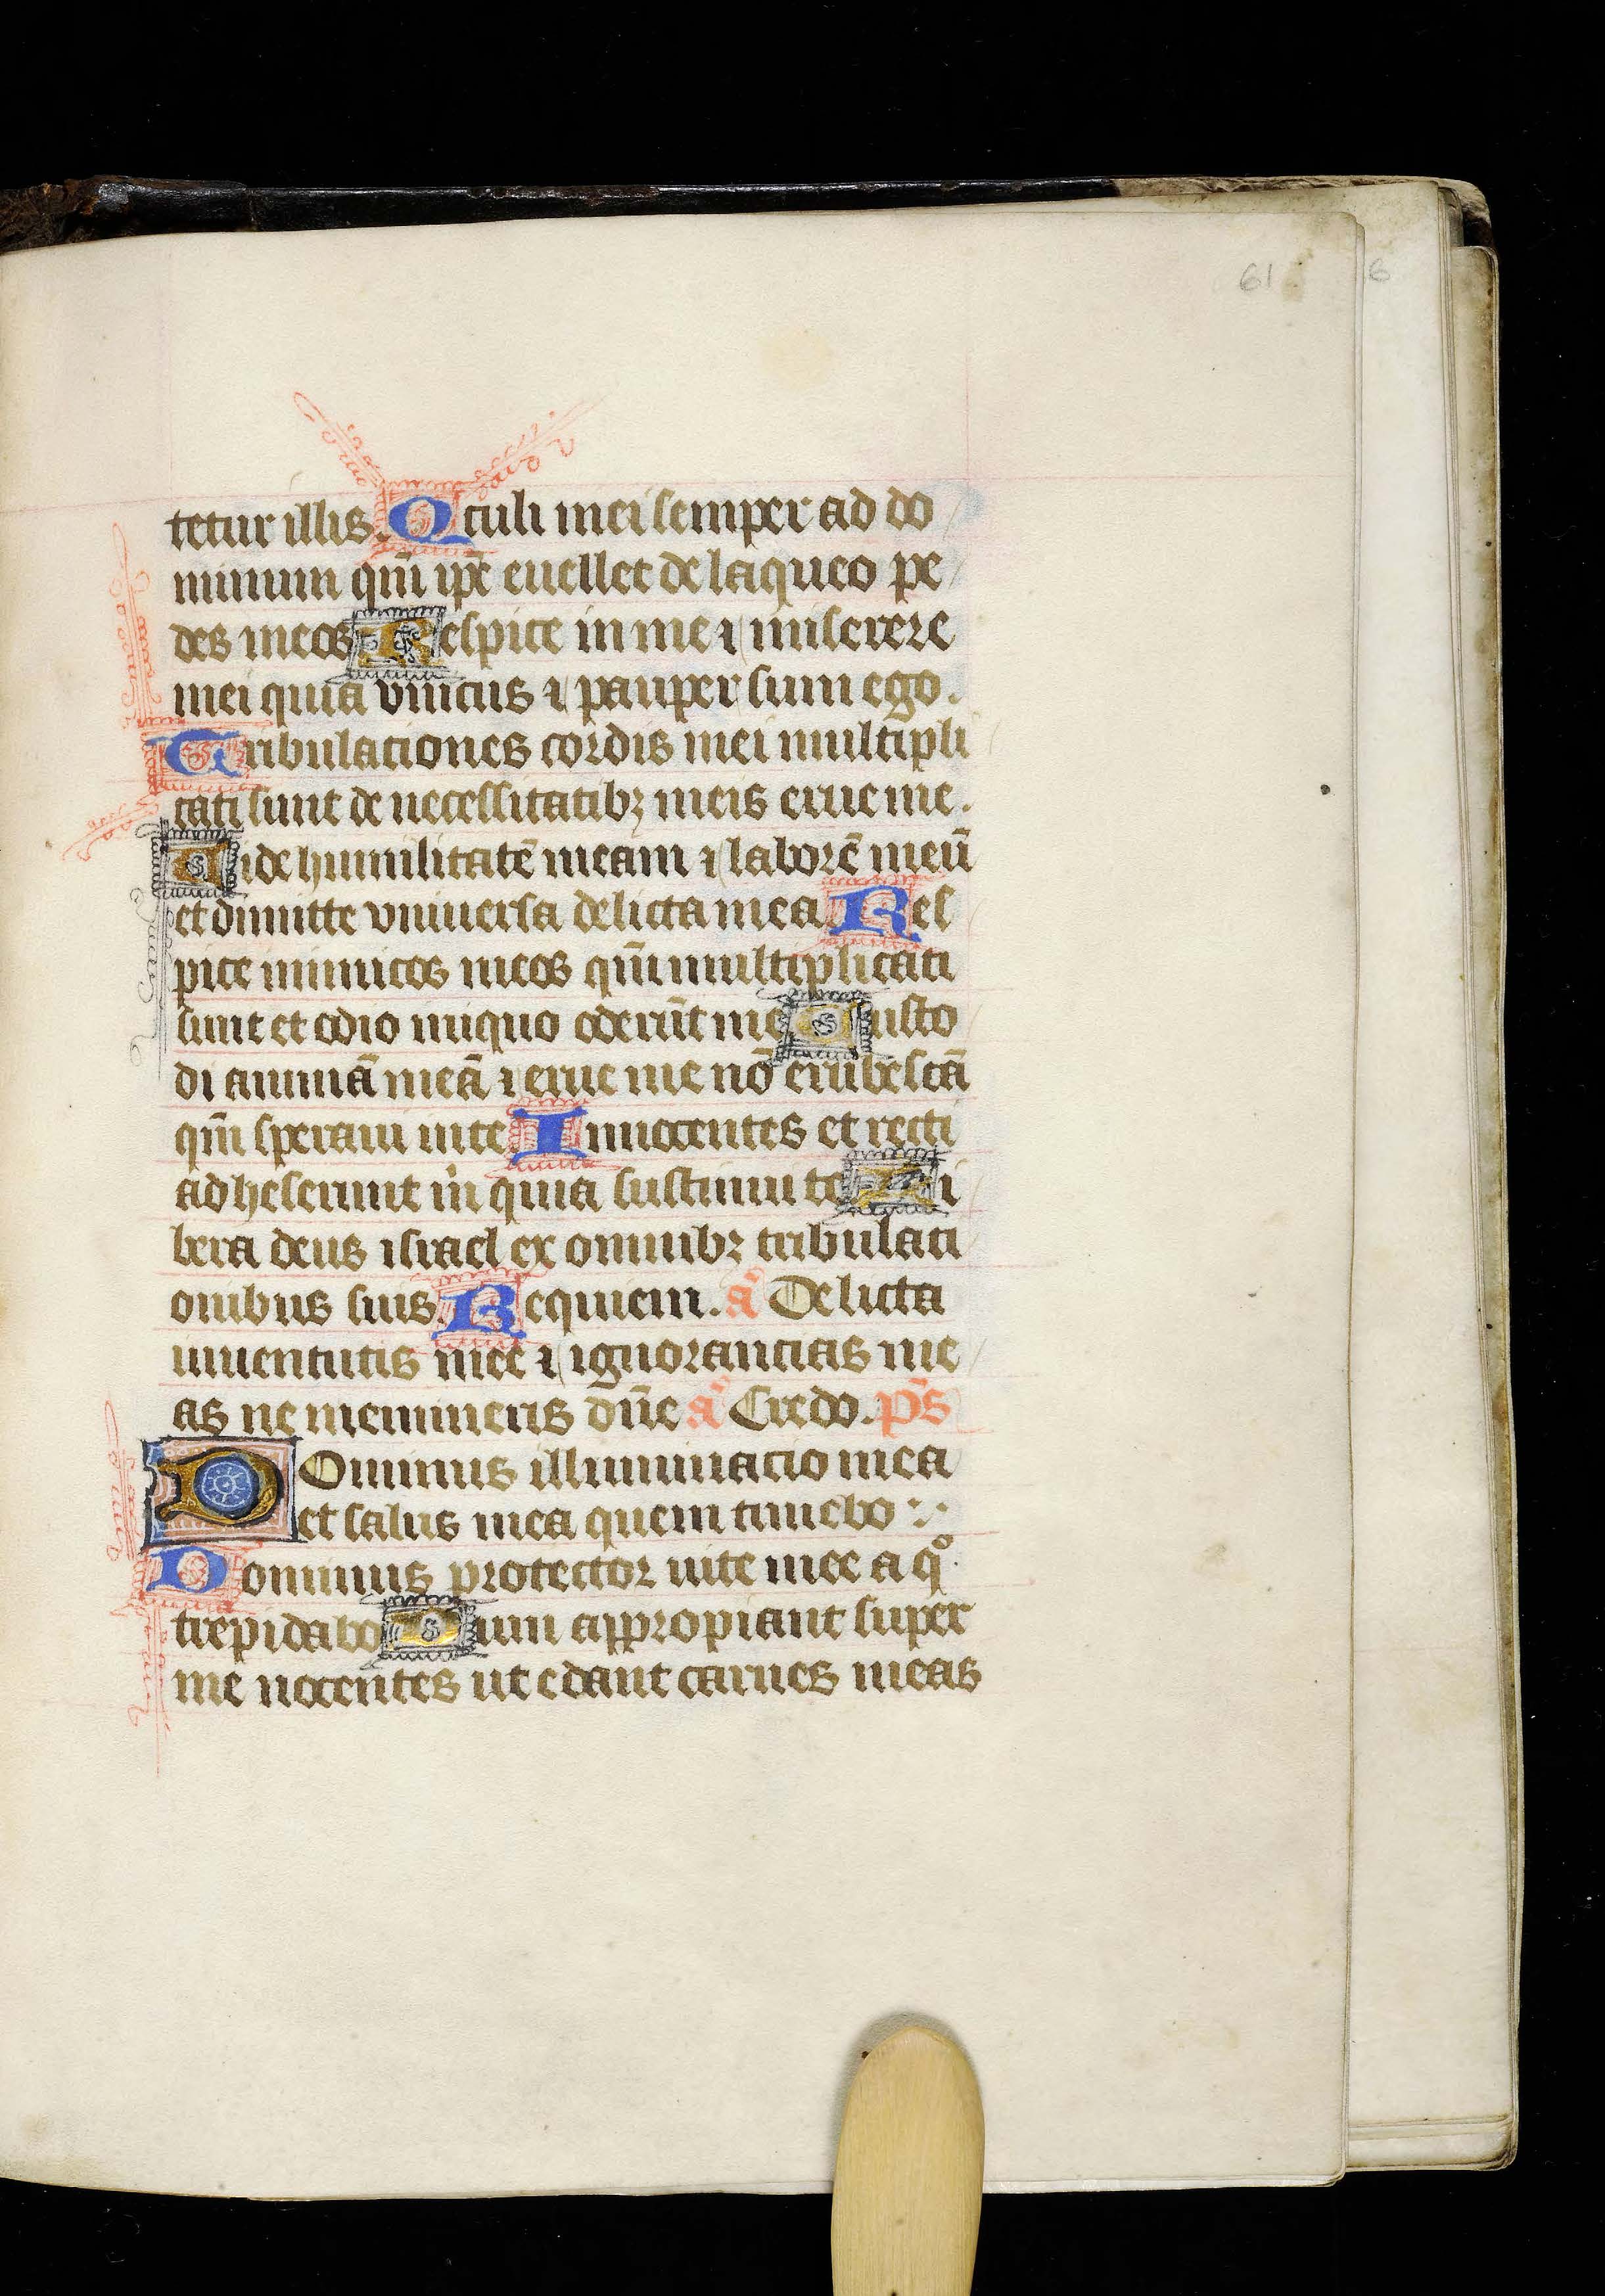 61
6
tetur illis. Oculi mei semper ad do
minum qm̄ ip̄e euellet de laqueo pe
des meos Respice in me ⁊ miserere
mei quia vnicus ⁊ pauper sum ego.
Tribulationes cordis mei multipli
cati sunt de necessitatibꝫ meis erue me.
Uide humilitatē meam ⁊ laborē meū
et dimitte vniuersa delicta mea Res
pice inimicos meos qm̄ multiplicati
sunt et odio iniquo oderūt me Custo
di animā meā ⁊ erue me nō erubescā
qm̄ speraui in te Innocentes et recti
adheserunt m̄ quia sustinui te Li
bera deus israel ex omnibꝫ tribulati
onibus suis. Requiem. añ Delicta
iuuentutis mee ⁊ ignorancias me
as ne memineris dn̄e añ Credo. p̄s
Dominus illuminacio mea
et salus mea quem timebo
Dominus protector uite mee a qº
trepidabo Dum appropiant super
me nocentes ut edant carnes meas